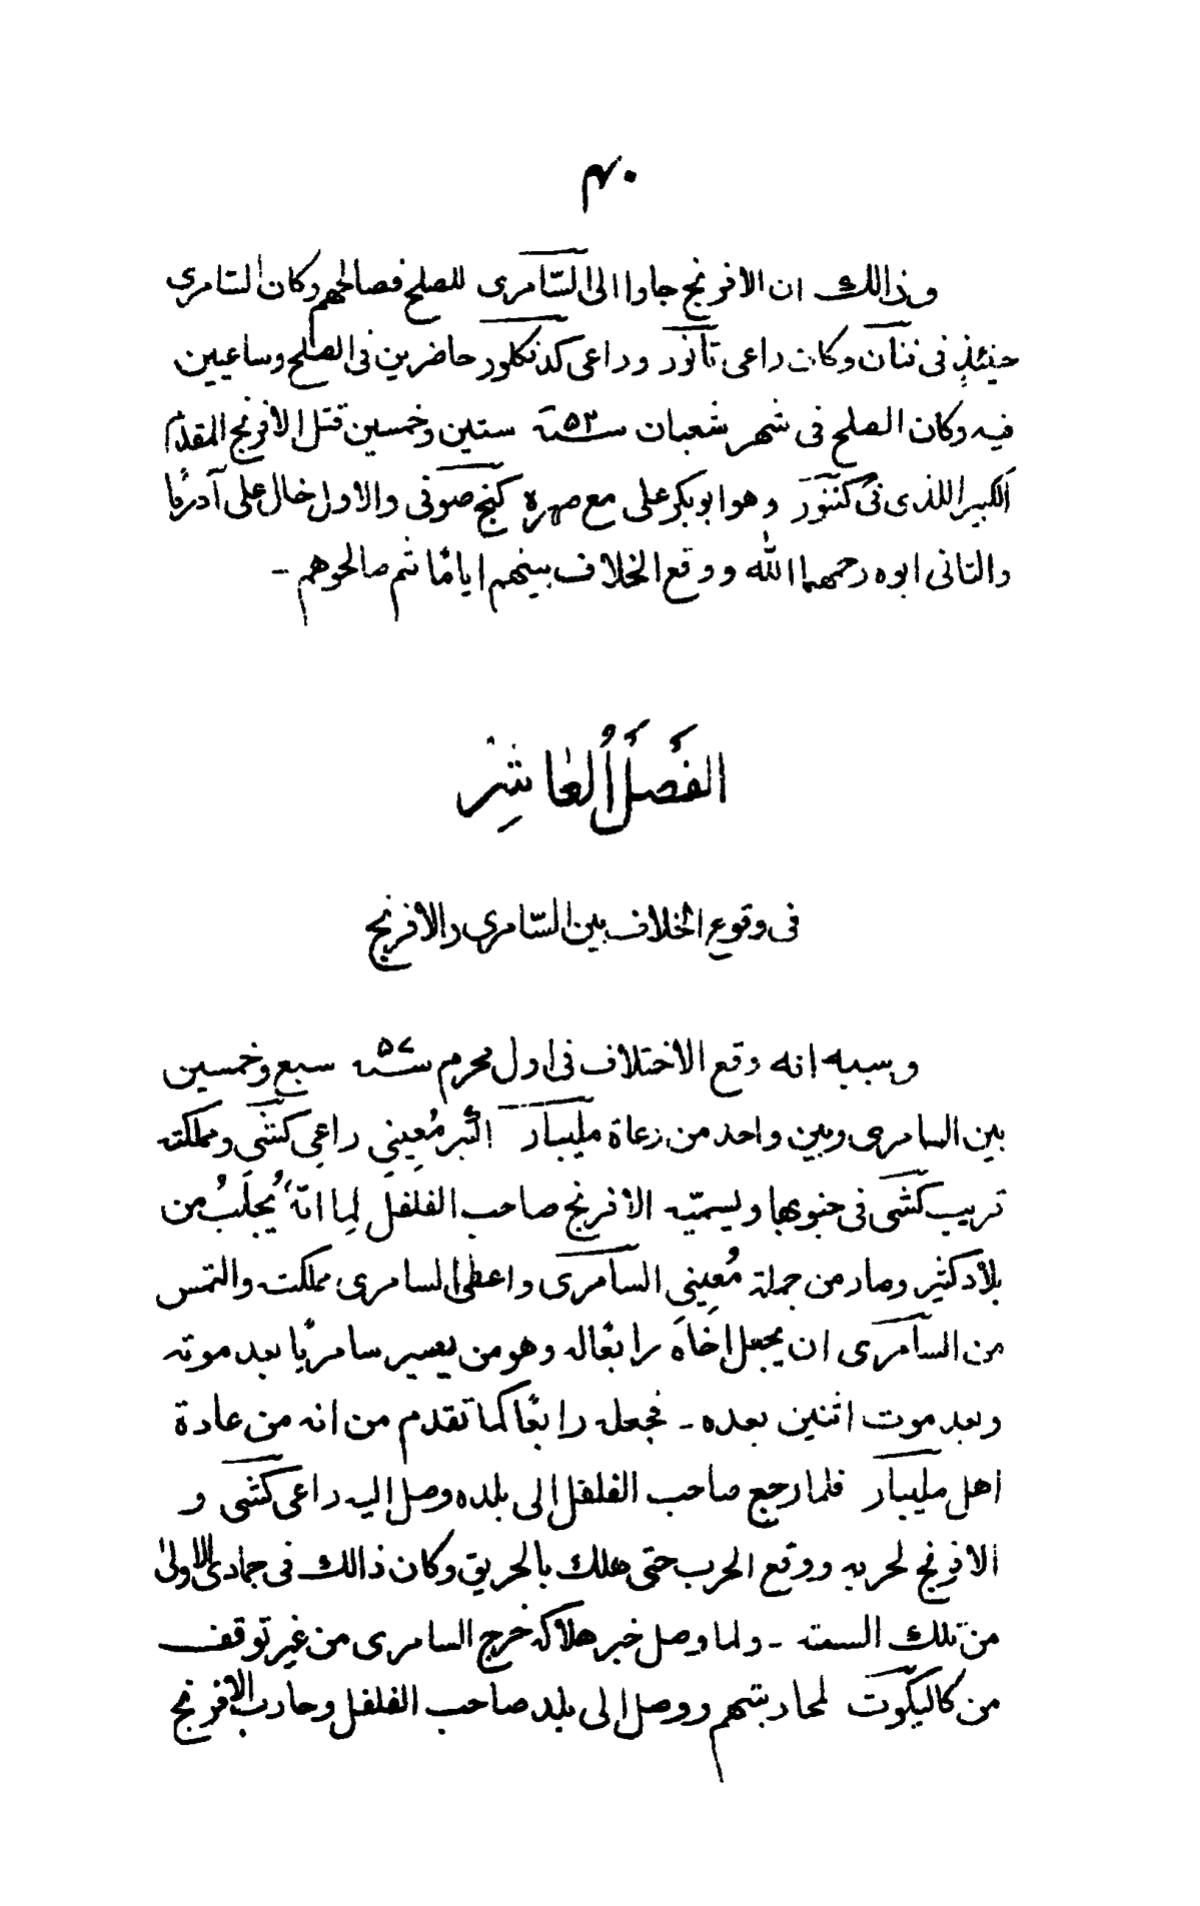 ۴۰
وذالك ان الافرنج جاوا الى السّامرى للصلح فصالحهم وكان السّامرى
حينئذٍ فى ننان وكان راعى تانور وراعى كدنكلور حاضرين فى الصلح وساعيين
فيه وكان الصلح فى شهر شعبان سنة ۵۲ ستين وخمسين قتل الافرنج المقدم
الكبير اللذى فى كننور وهو ابو بكر على مع صهره كنج صوفى والاول خال على آدرا
والثانى ابوه رحمهما الله ووقع الخلاف بينهم ايامًا ثم صالحوهم -
الفَصلُ العاشِر
فى وقوع الخلاف بين السّامرى والافرنج
وسببه انه وقع الاختلاف فى اول محرم سنة ۵۷ سبع وخمسين
بين السامرى وبين واحد من رعاة مليبار اكبر مُعِينِي راعى كشى ومملكته
قريب كشى فى جنوبها ويسمّيه الافرنج صاحب الفلفل لِما انّه يُجلَبُ من
بلاد كثير وصار من جملة مُعِينِي السامرى واعطى السامرى مملكته والتمس
من السامرى ان يجعل اخاه رابعًا له وهو من يصير سامريًا بعد موته
وبعد موت اثنين بعده - فجعله رابعًا كما تقدم من انه من عادة
اهل مليبار فلما رجع صاحب الفلفل الى بلده وصل اليه راعى كشى و
الافرنج لحربه ووقع الحرب حتى هلك بالحريق وكان ذالك فى جمادى الاولى
من تلك السنة - ولما وصل خبر هلاكه خرج السامرى من غير توقف
من كاليكوت لمحاربتهم ووصل الى بلد صاحب الفلفل وحارب الافرنج